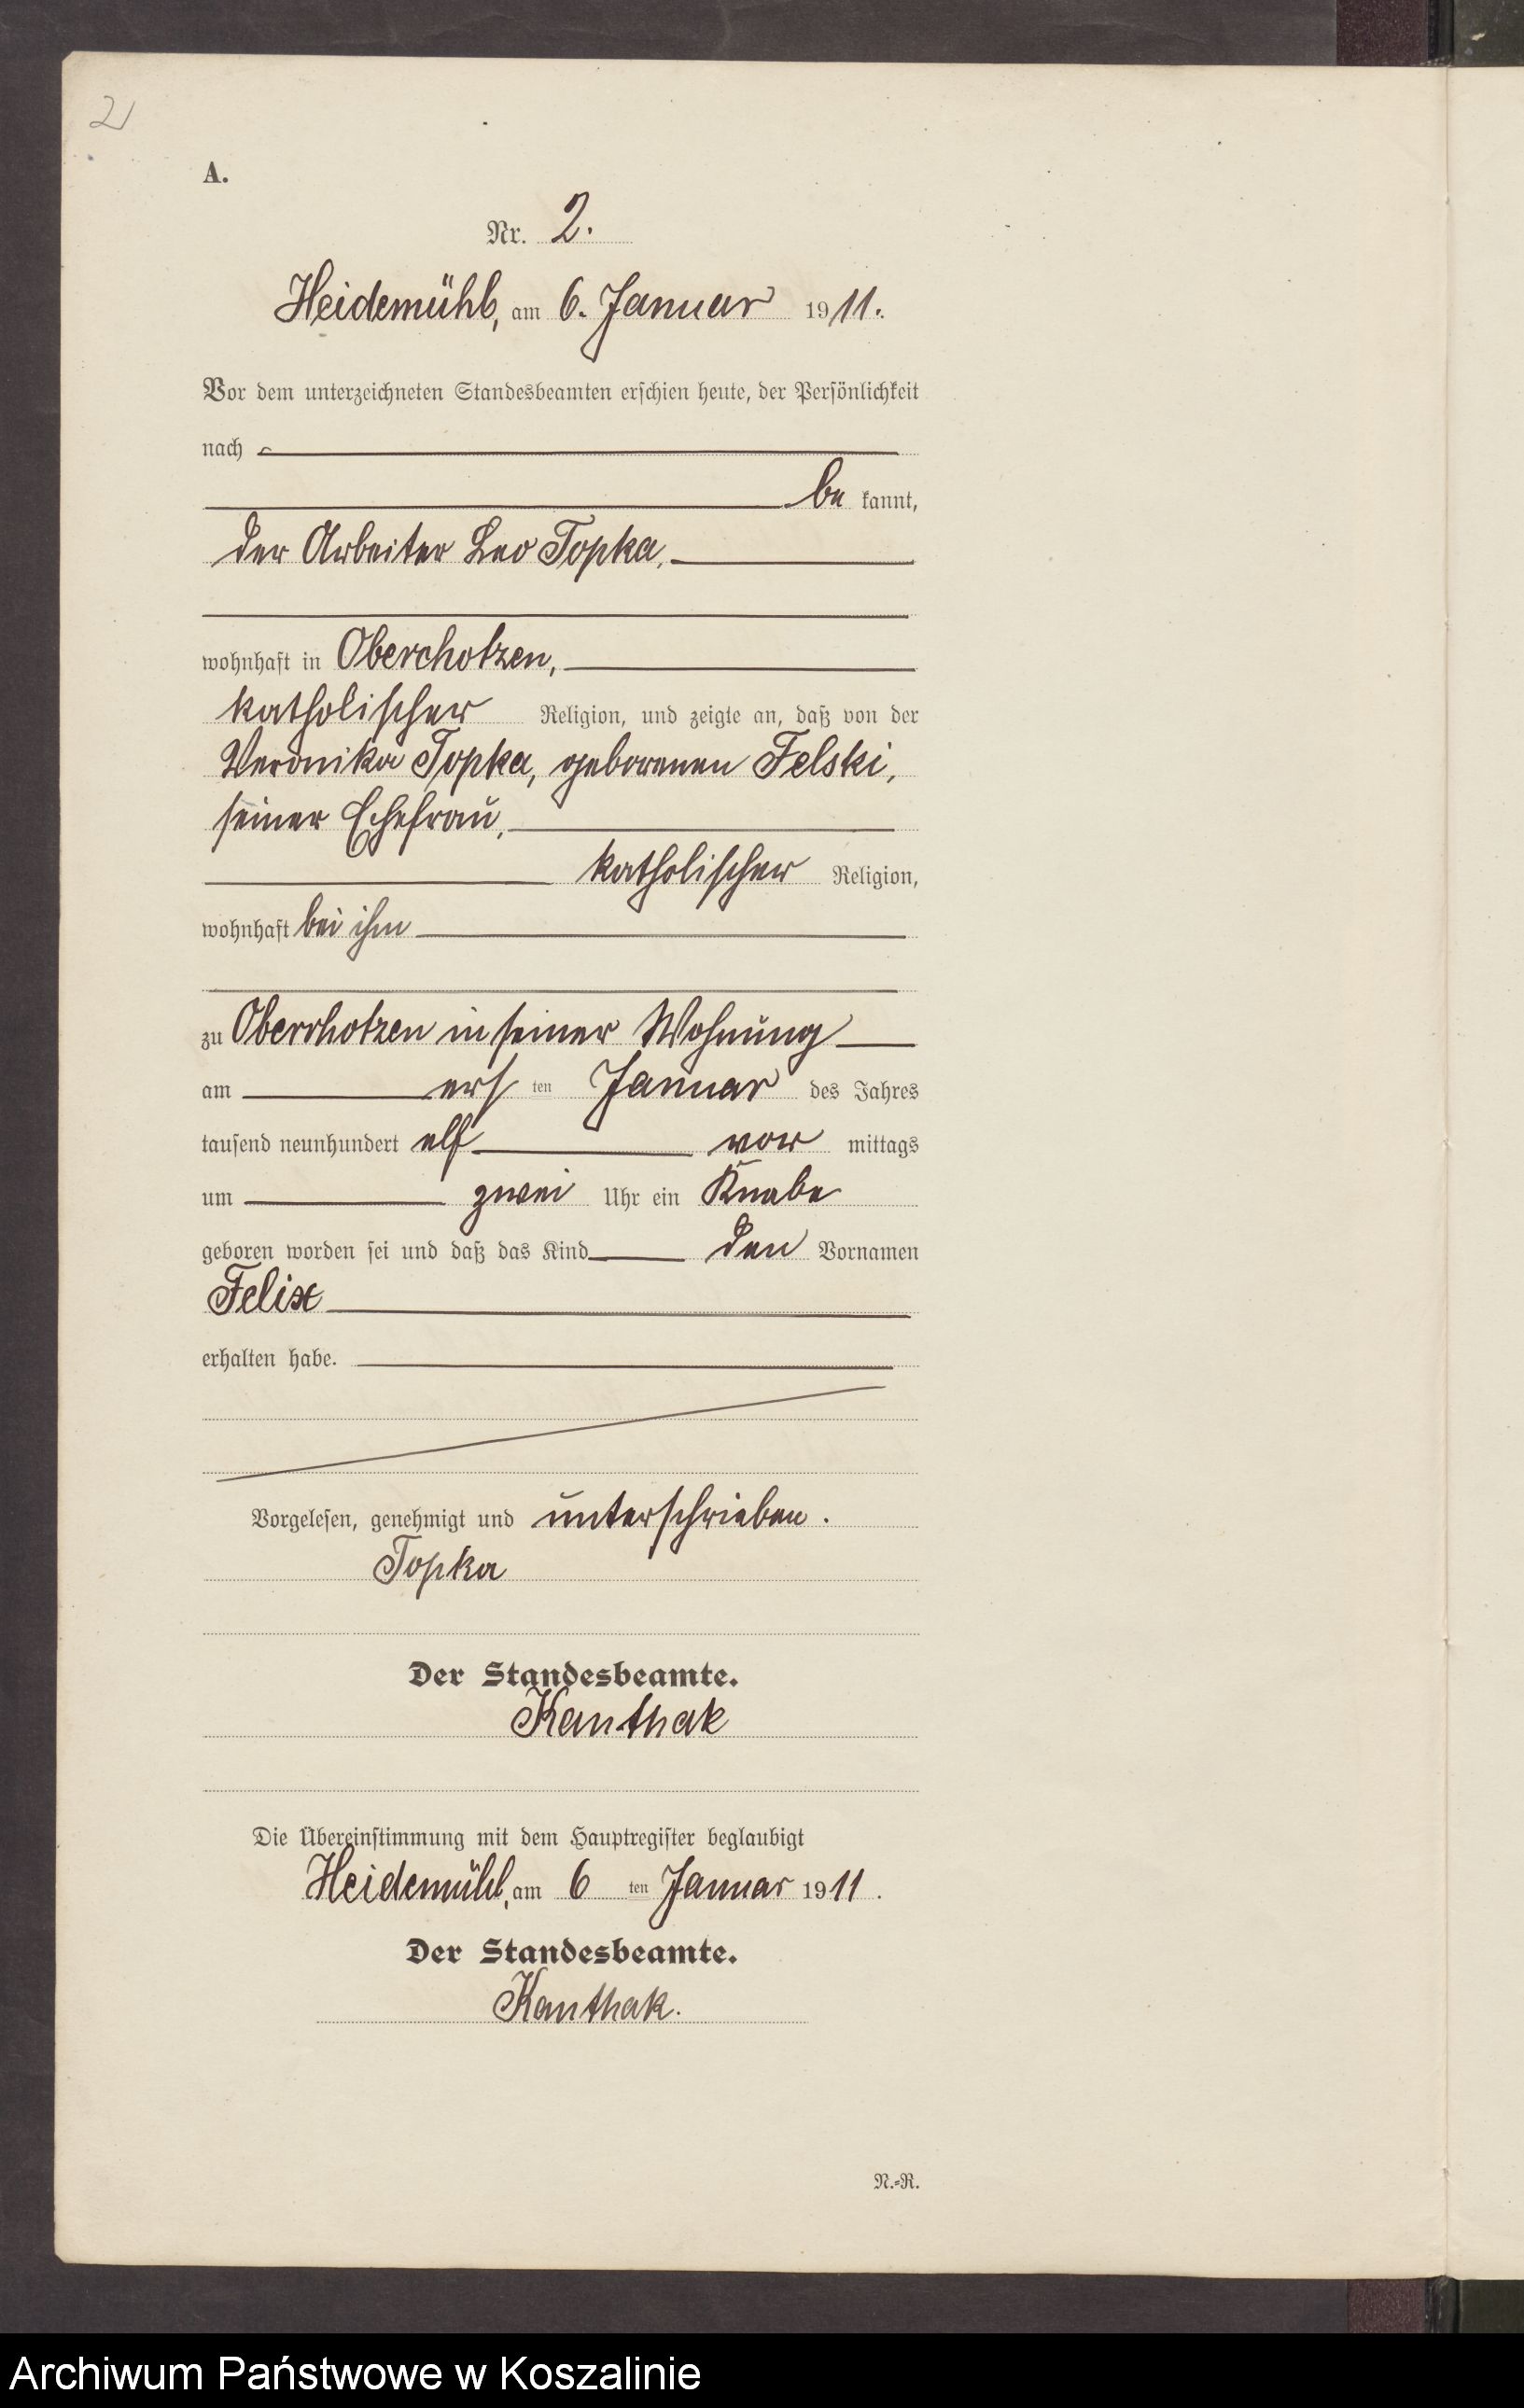 2
A.
Nr. 2.
Heidemühl, am 6. Januar 1911.
Vor dem unterzeichneten Standesbeamten erschien heute, der Persönlichkeit
nach
be kannt,
der Arbeiter Leo Topka,
wohnhaft in Oberchotzen,
katholischer Religion, und zeigte an, daß von der
Veronika Topka, geborenen Felski,
seiner Ehefrau,
katholischer Religion,
wohnhaft bei ihm
zu Oberchotzen in seiner Wohnung
am ers ten Januar des Jahres
tausend neunhundert elf vor mittags
um zwei Uhr ein Knabe
geboren worden sei und daß das Kind den Vornamen
Felix
erhalten habe.
Vorgelesen, genehmigt und unterschrieben.
Topka
Der Standesbeamte.
Kanthak
Die Übereinstimmung mit dem Hauptregister beglaubigt
Heidemühl, am 6 ten Januar 1911.
Der Standesbeamte.
Kanthak.
N.=R.
Archiwum Państwowe w Koszalinie